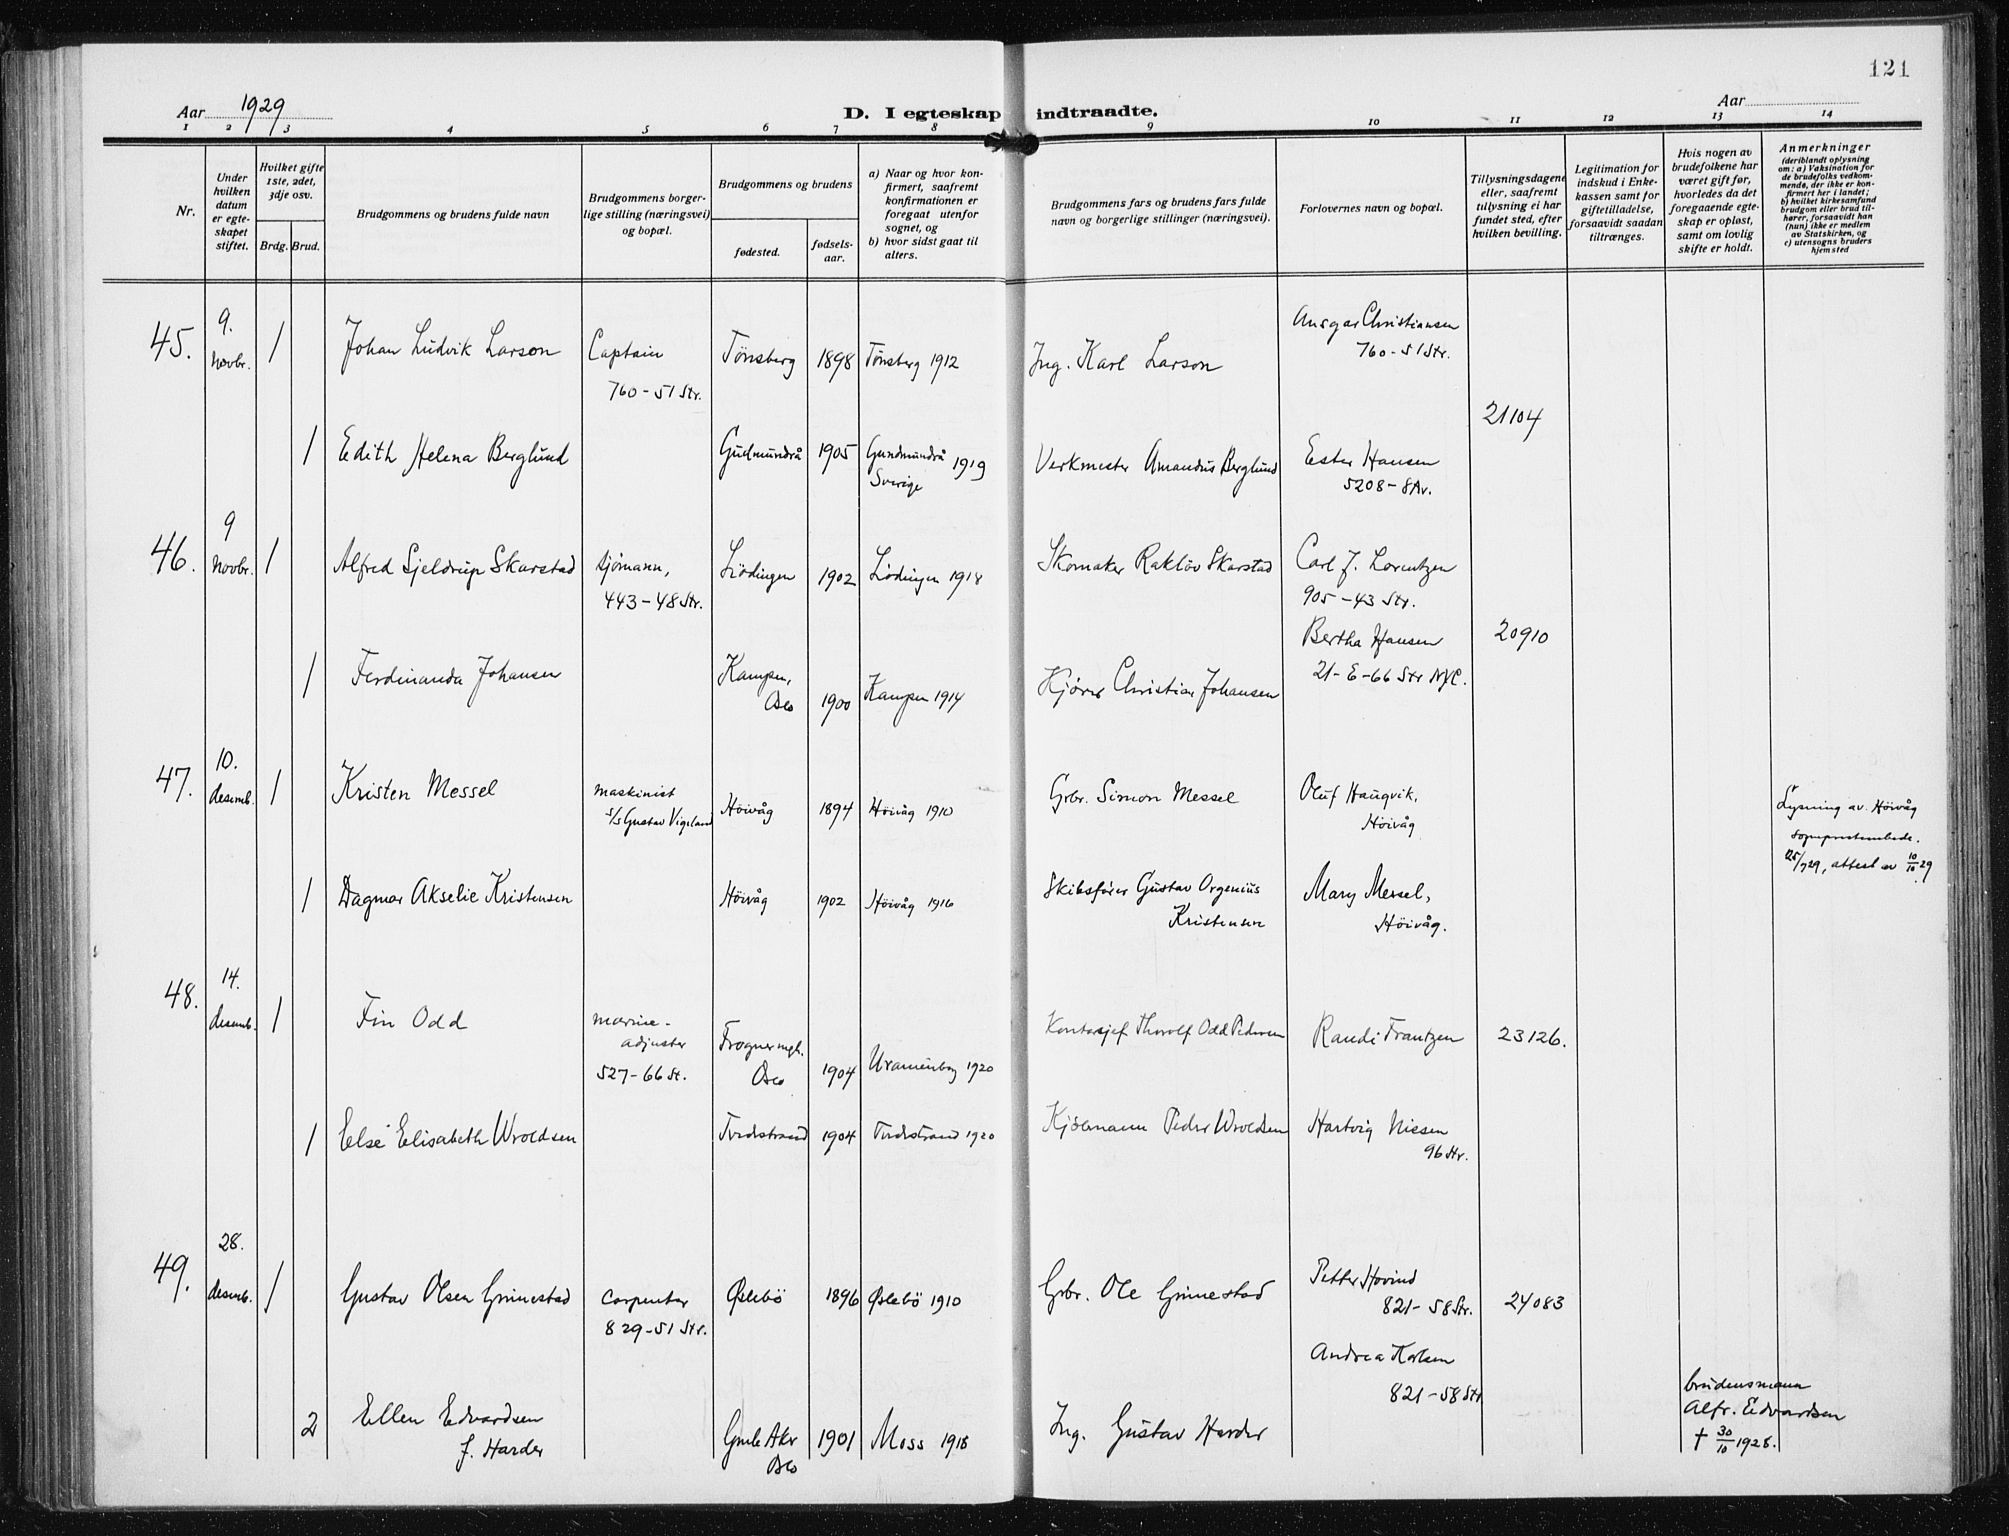 121
Aar 1929
D. I egteskap indtraadte.
Aar
1 2 3 4 5 6 7 8 9 10 11 12 13 14
Nr.
Under
hvilken
datum
er egte-
skapet
stiftet.
Hvilket gifte
1ste, 2det,
3dje osv.
Brdg. Brud.
Brudgommens og brudens fulde navn
Brudgommens borger-
lige stilling (næringsvei)
og bopæl.
Brudgommens og brudens
fødested.
fødsels-
aar.
a) Naar og hvor kon-
firmert, saafremt
konfirmationen er
foregaat utenfor
sognet, og
b) hvor sidst gaat til
alters.
Brudgommens fars og brudens fars fulde
navn og borgerlige stillinger (næringsvei).
Forlovernes navn og bopæl.
Tillysningsdagene
eller, saafremt
tillysning ei har
fundet sted, efter
hvilken bevilling.
Legitimation for
indskud i Enke-
kassen samt for
giftetilladelse,
forsaavidt saadan
tiltrænges.
Hvis nogen av
brudefolkene har
været gift før,
hvorledes da det
foregaaende egte-
skap er opløst,
samt om lovlig
skifte er holdt.
Anmerkninger
(deriblandt oplysning
om: a) Vaksination for
de brudefolks vedkom-
mende, der ikke er kon-
firmert her i landet;
b) hvilket kirkesamfund
brudgom eller brud til-
hører, forsaavidt han
(hun) ikke er medlem
av Statskirken, og
c) utensogns bruders
hjemsted
45. 9. Novbr. 1 Johan Ludvik Larson Captain Tönsberg 1898 Tönsberg 1912 Ing. Karl Larson Ansgar Christiansen
760-51 Str. 760-51 Str.
21104
1 Edith Helena Berglund Gudmundrå 1905 Gundmundrå 1919 Verkmester Amandus Berglund Ester Hansen
Sverige 5208-8 Av.
46. 9 Novbr. 1 Alfred Sjeldrup Skarstad sjömann, Lödingen 1902 Lödingen 1918 Skomaker Raklöv Skarstad Carl J. Lorentzen
443-48 Str. 905-43 Str.
1 Ferdinanda Johansen Kampen, Oslo 1900 Kampen 1914 Kjörer Christian Johansen Bertha Hansen 20910
21-E-66 Str NYC.
47. 10. desemb. 1 Kristen Messel maskinist Höivåg 1894 Höivåg 1910 Grbr. Simon Messel Oluf Haugvik,
s/s Gustav Vigeland Höivåg
Lysning av Höivåg
sogneprestembede.
25/9 29, attest av 10/10 29
1 Dagmar Akselie Kristensen Höivåg 1902 Höivåg 1916 Skibsfører Gustav Orgenius Mary Messel,
Kristensen Höivåg.
48. 14. desemb. 1 Fin Odd marine- Frogner mgh. Kontorsjef Thorolf Odd Pedersen Randi Frantzen 23126.
adjuster
527-66 St. Oslo 1904 Uranienborg 1920
1 Else Elisabeth Wroldsen Tvedestrand 1904 Tvedestrand 1920 Kjöbmann Peder Wroldsen Hartvig Nissen
96 Str.
49. 28. desemb. 1 Gustav Olsen Grimestad Carpenter Øslebö 1896 Øslebö 1910 Grbr. Ole Grimestad Petter Hovind
829-51 Str. 821-58 Str. 24083
Andrea Karlsen
821-58 Str
2 Ellen Edvardsen Gmle Akr 1901 Moss 1918 Ing. Gustav Harder
f. Harder Oslo
brudensmann
Alfr. Edvardsen
† 30/10 1928.